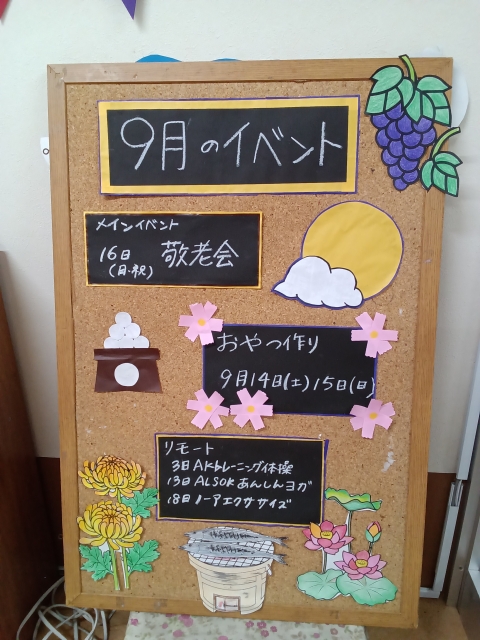 9月のイベント
メインイベント
16日 敬老会
(月・祝)
おやつ作り
9月14日(土)15日(日)
リモート
3日AKトレーニング体操
13日ALSOKあんしんヨガ
18日ノーアエクササイズ